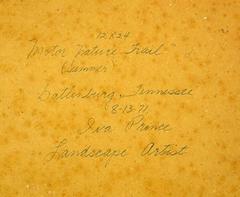 12x24
"Motor Nature Trail"
(Summer)
Gatlinburg, Tennessee
8-13-71
Iva Prince
Landscape Artist